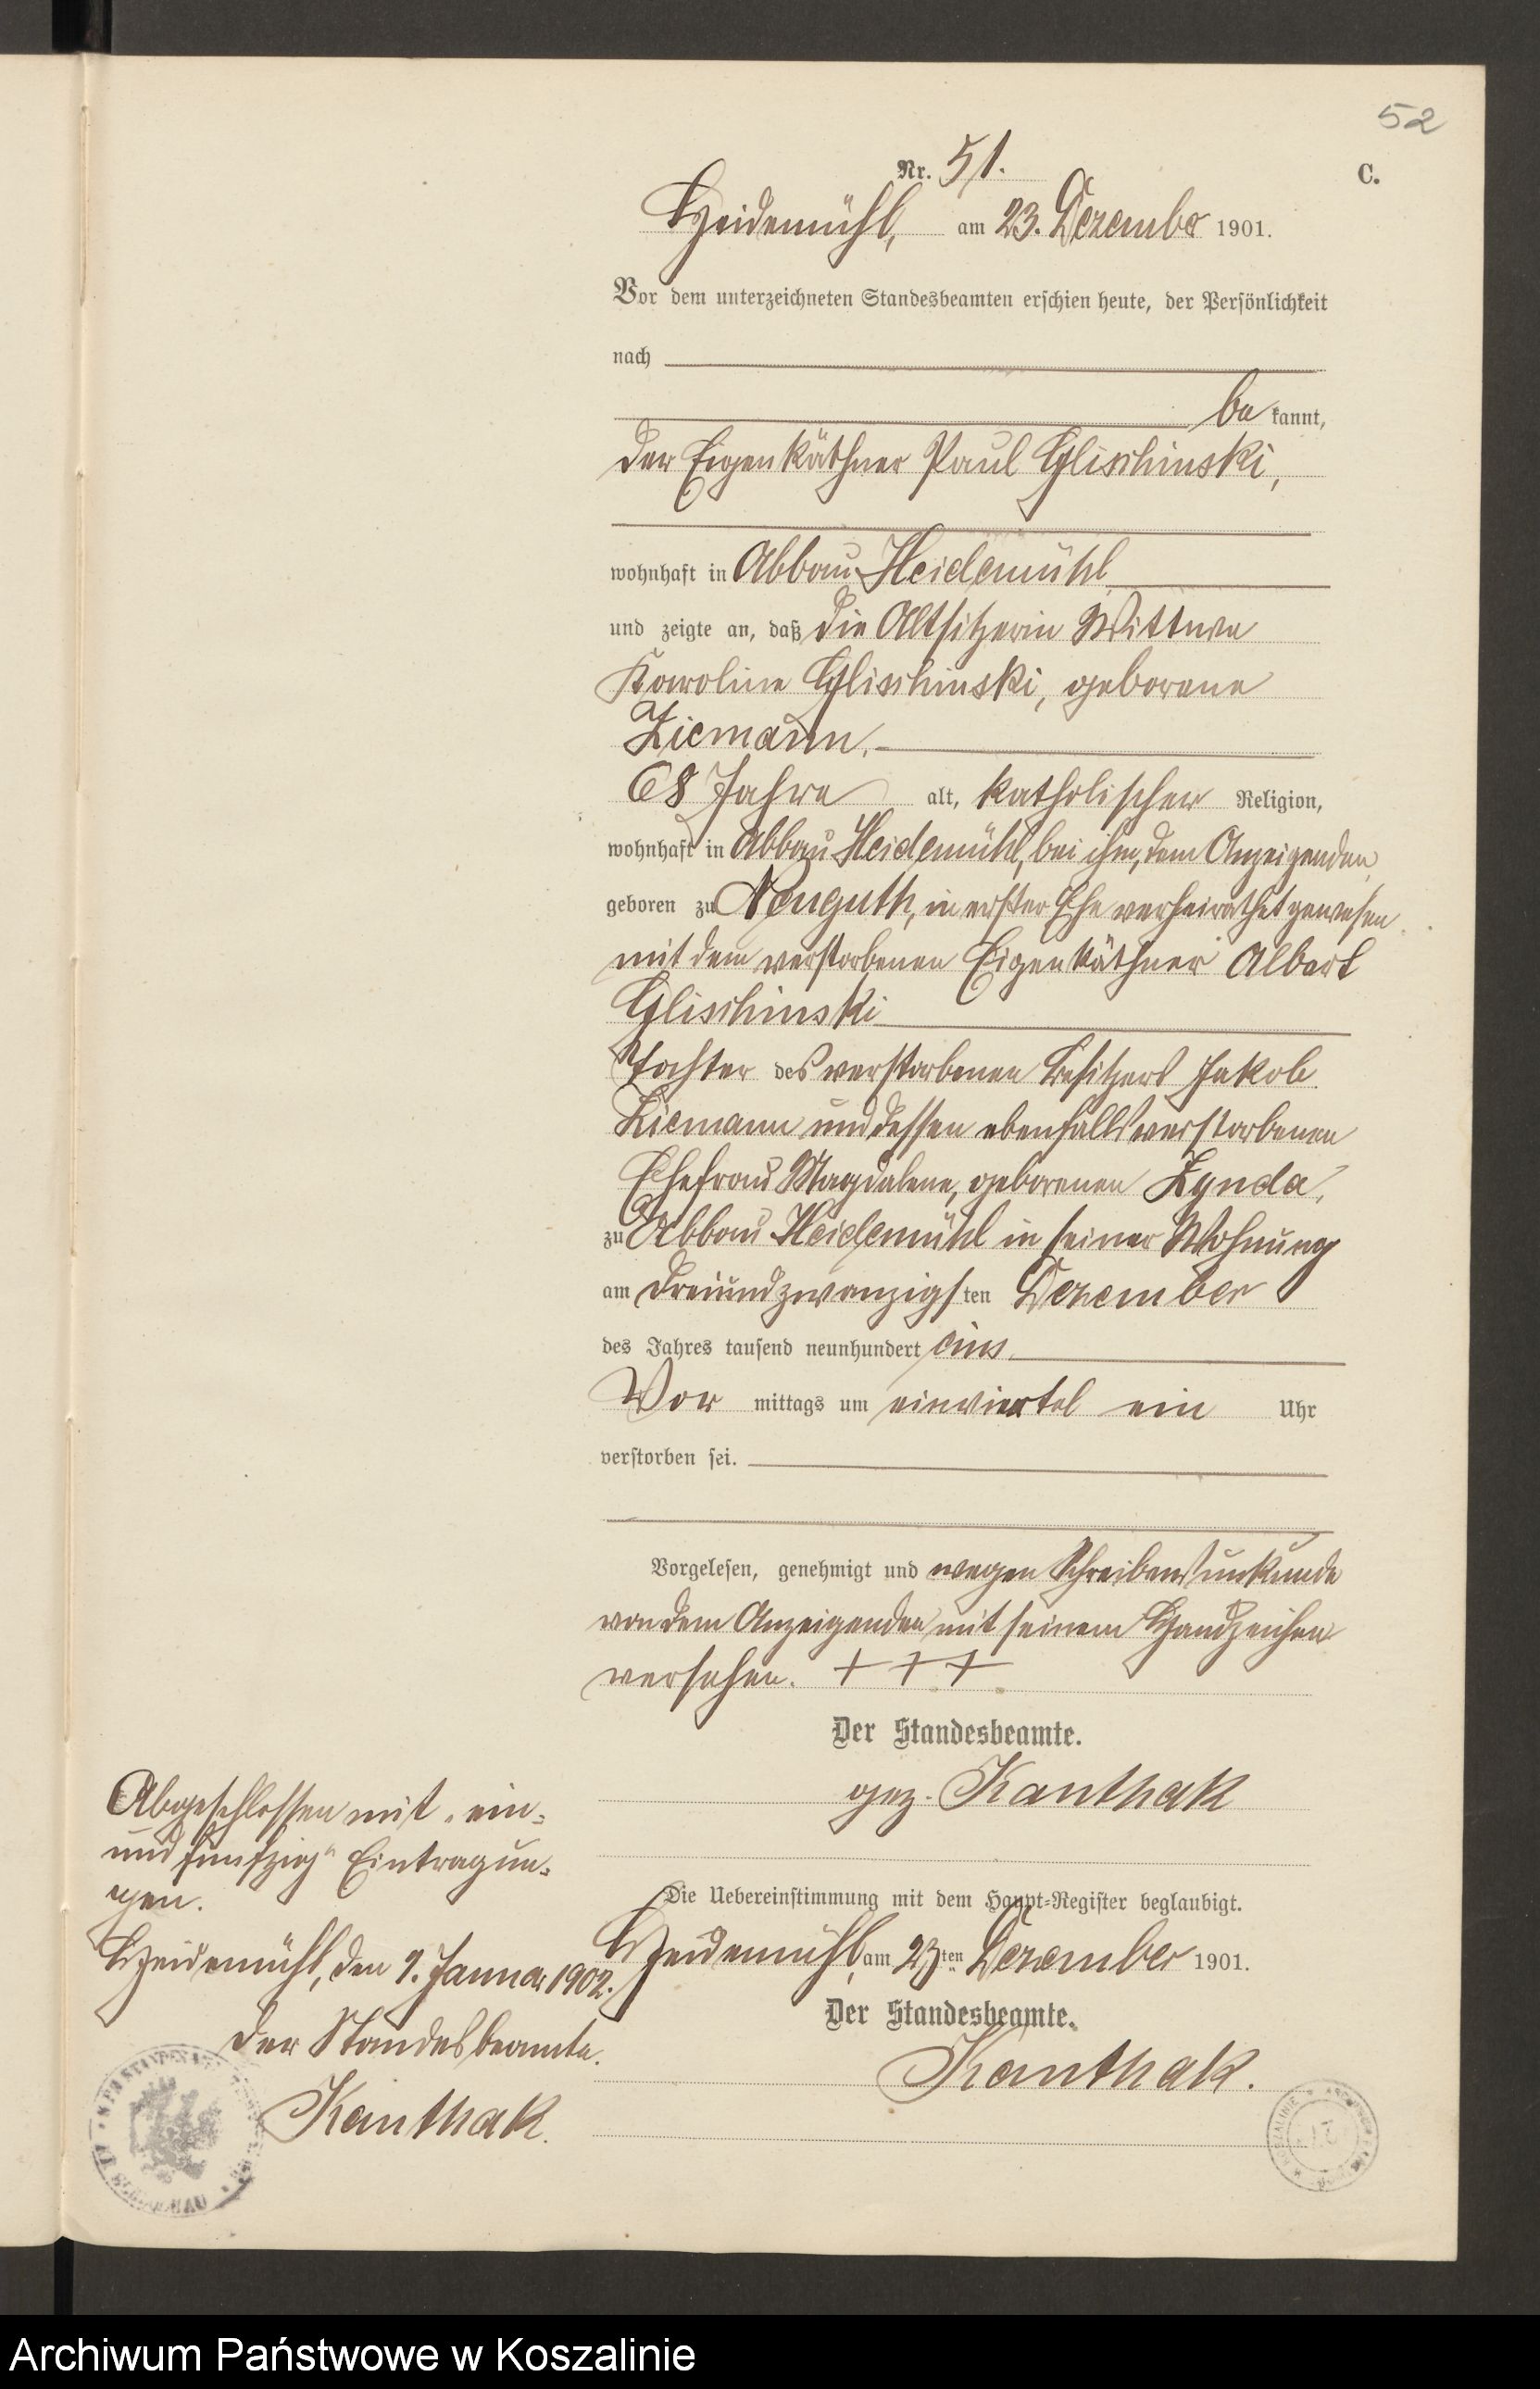 52
Nr. 51.
C.
Heidemühl, am 23. Dezember 1901.
Vor dem unterzeichneten Standesbeamten erschien heute, der Persönlichkeit
nach
be kannt,
der Eigenkäthner Paul Glischinski,
wohnhaft in Abbau Heidemühl
und zeigte an, daß die Altsitzerin Wittwe
Karoline Glischinski, geborene
Ziemann,
68 Jahre alt, katholischer Religion,
wohnhaft in Abbau Heidemühl, bei ihm, dem Anzeigenden,
geboren zu Neuguth, in erster Ehe verheirathet gewesen
mit dem verstorbenen Eigenkäthner Albert
Glischinski
Tochter des verstorbenen Besitzers Jakob
Ziemann und dessen ebenfalls verstorbenen
Ehefrau Magdalene, geborenen Zynda,
zu Abbau Heidemühl in seiner Wohnung
am dreiundzwanzigsten Dezember
des Jahres tausend neunhundert eins
Vor mittags um einviertel ein Uhr
verstorben sei.
Vorgelesen, genehmigt und wegen Schreibensunkunde
von dem Anzeigenden mit seinem Handzeichen
versehen. + + +
Der Standesbeamte.
gez. Kanthak
Die Uebereinstimmung mit dem Haupt-Register beglaubigt.
Heidemühl, am 23ten Dezember 1901.
Der Standesbeamte.
Kanthak.
Abgeschlossen mit „ein-
und fünfzig" Eintragun-
gen.
Heidemühl, den 9. Januar 1902.
Der Standesbeamte.
Kanthak.
Archiwum Państwowe w Koszalinie